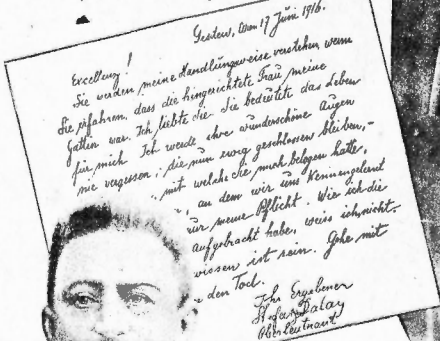 den 17 Juni 1916.
Excellenz!
Sie werden meine Handlungsweise verstehen, wenn
Sie erfahren, dass die hingerichtete Frau meine
Gattin war. Ich liebte sie. Sie bedeutete das Leben
für mich. Ich werde ihre wunderschöne Augen
nie vergessen, die nun ewig geschlossen bleiben,-
mit welche sie mich belogen hatte,
an dem wir uns Kennengelernt
nur meine Pflicht. Wie ich die
aufgebracht habe, weis ich nicht.
wissen ist rein. Gehe mit
den Tod.
Ihr Ergebener
Oberleutnant